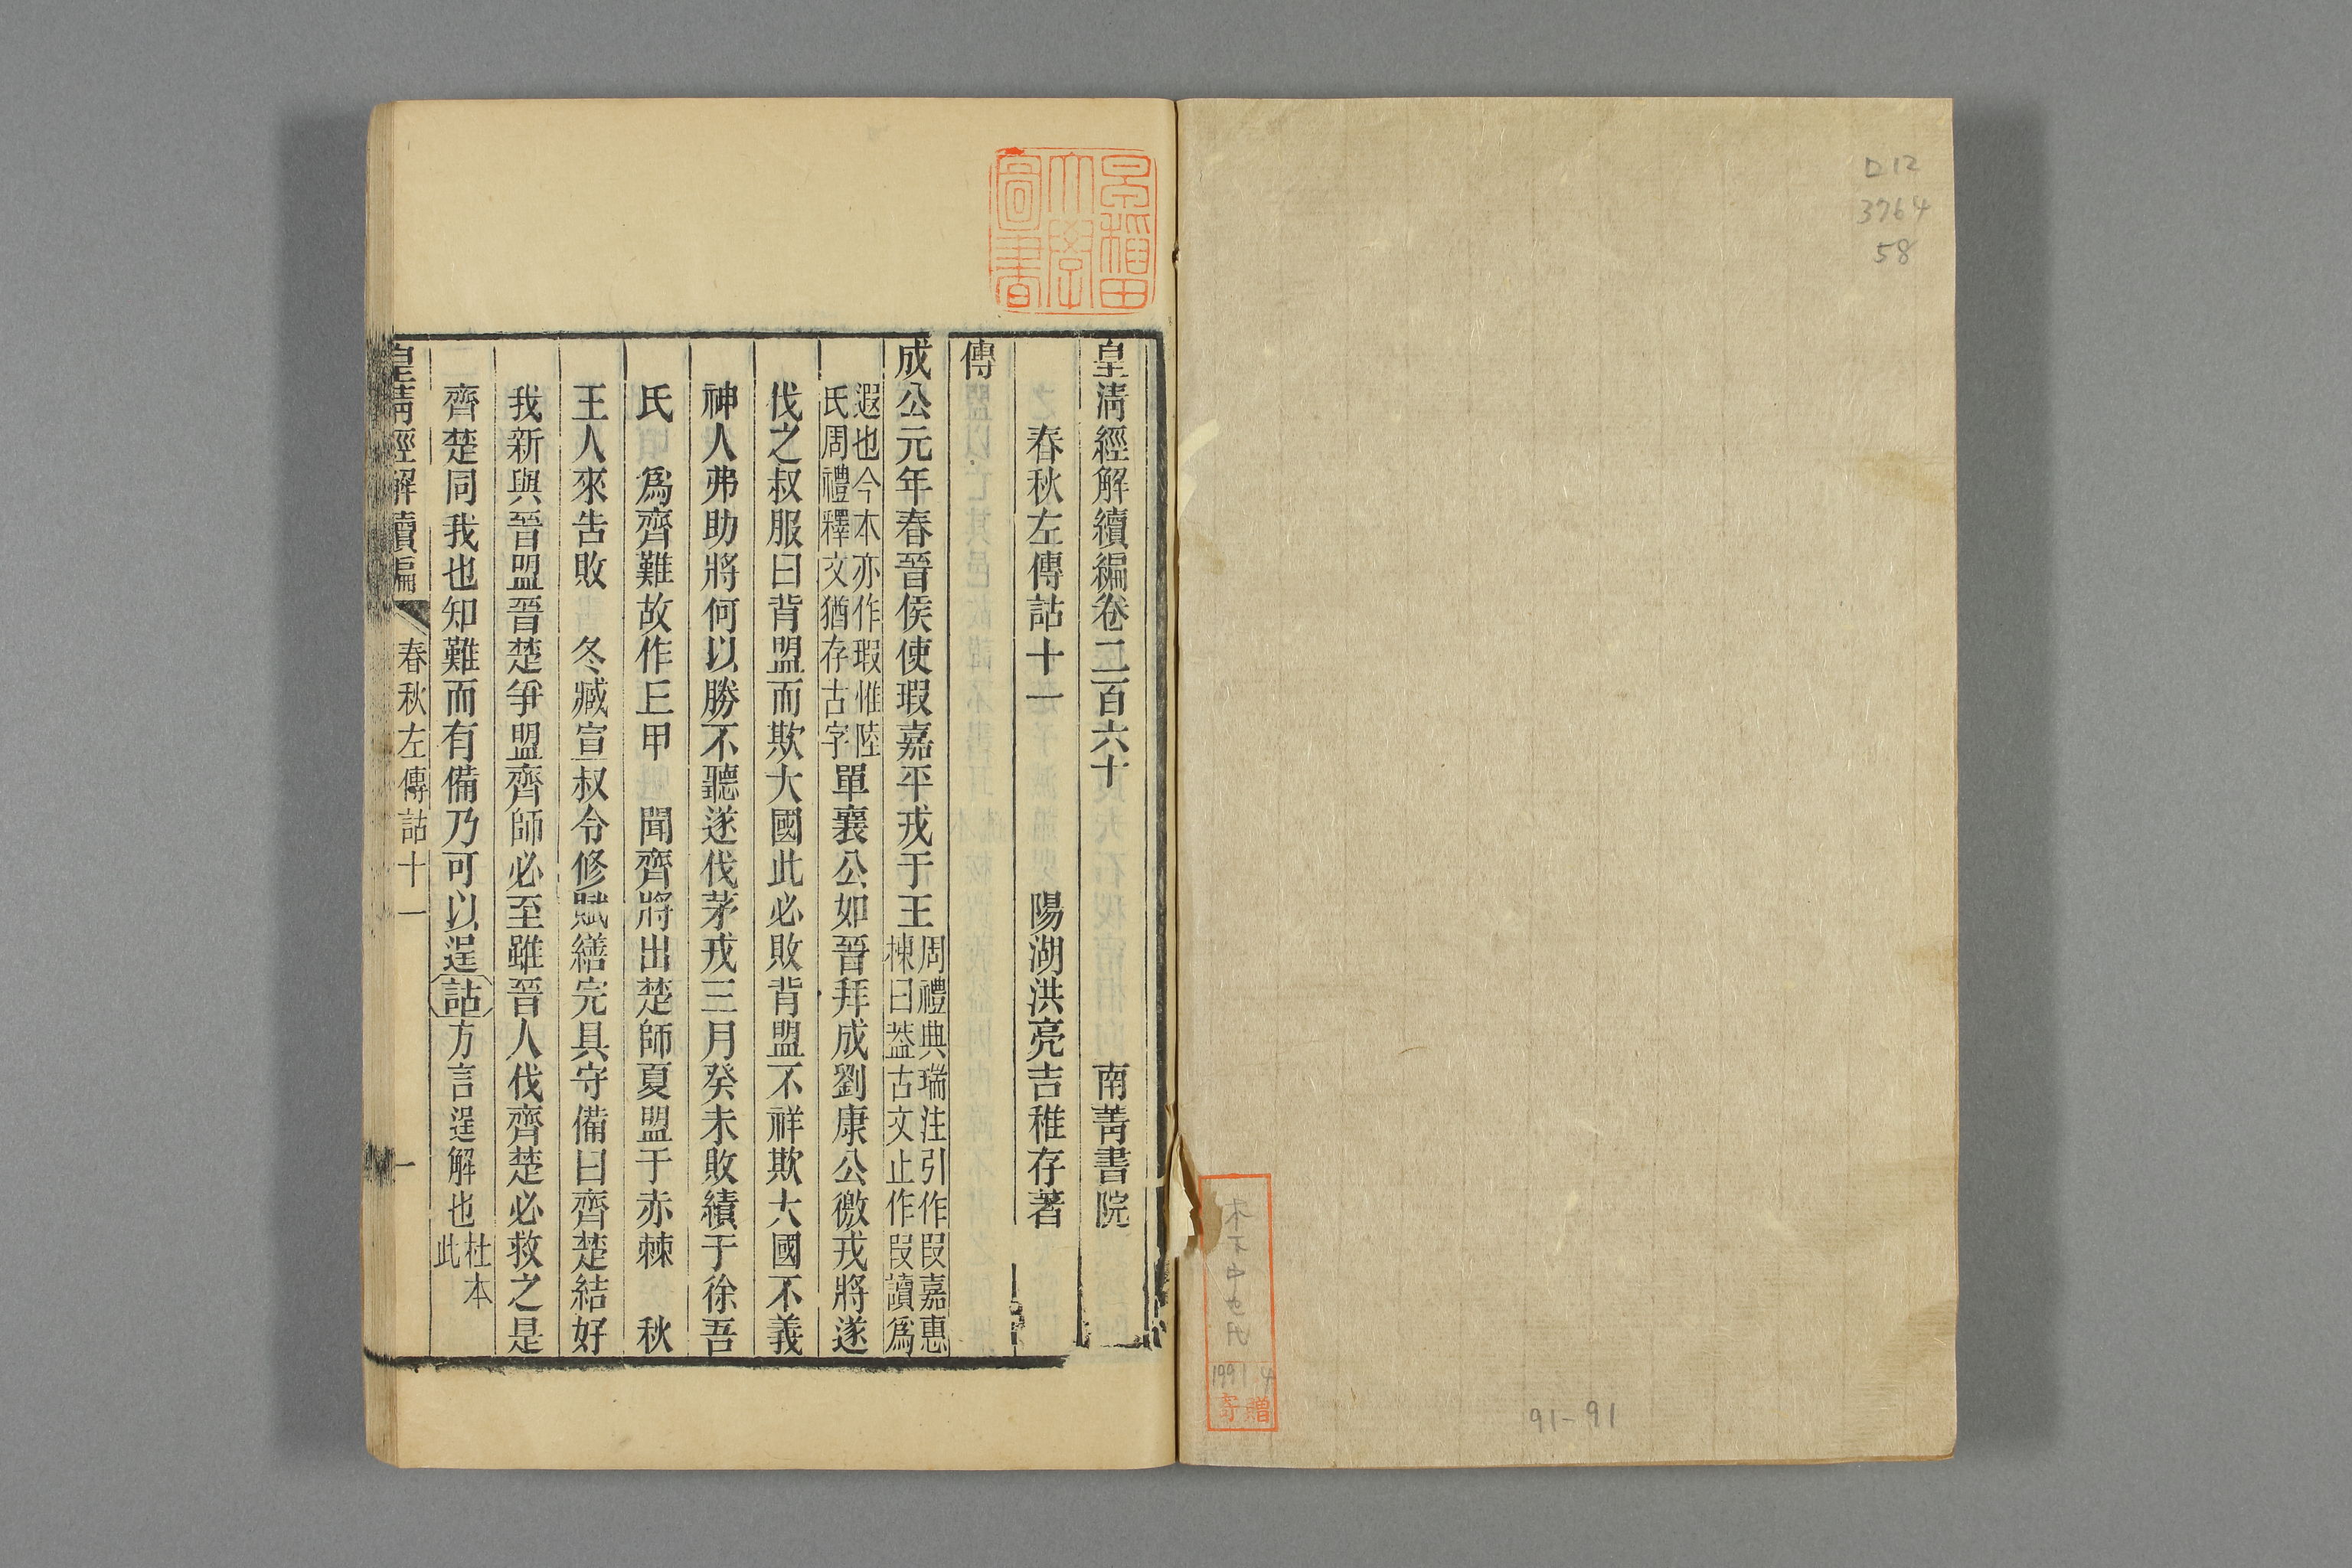 D12
3764
58
早稲田
大學
圖書
1991 4
寄贈
91-91
皇清經解續編卷二百六十 南菁書院
春秋左傳詁十一 陽湖洪亮吉稚存著
傳
成公元年春晉侯使瑕嘉平戎于王
周禮典瑞注引作叚嘉惠
棟曰葢古文止作叚讀爲
遐也今本亦作瑕惟陸
氏周禮釋文猶存古字
單襄公如晉拜成劉康公徼戎將遂
伐之叔服曰背盟而欺大國此必敗背盟不祥欺大國不義
神人弗助將何以勝不聽遂伐茅戎三月癸未敗績于徐吾
氏 爲齊難故作𠀉甲 聞齊將出楚師夏盟于赤棘 秋
王人來告敗 冬臧宣叔令修賦繕完具守備曰齊楚結好
我新與晉盟晉楚爭盟齊師必至雖晉人伐齊楚必救之是
齊楚同我也知難而有備乃可以逞詁方言逞解也
杜本
此
皇清經解續編 春秋左傳詁十一 一